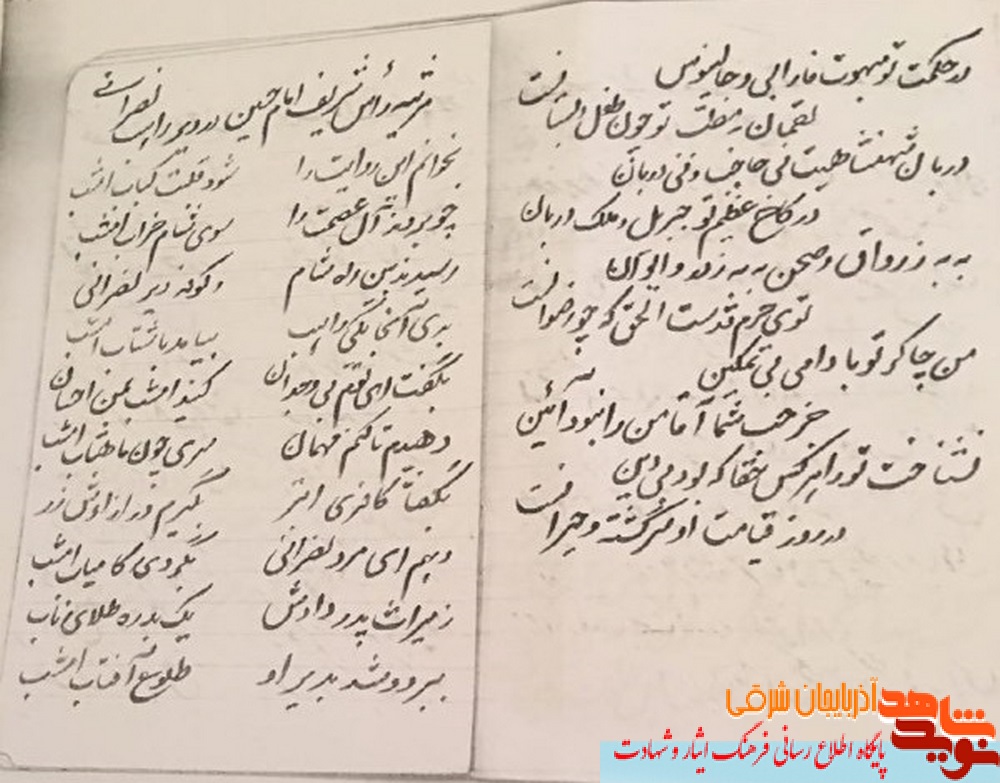 در حکمت تو مبهوت فارابی و جالینوس
لقمان بر منطقت تو چون طفل دبستانست
دربان شهنشاهیت نی حاجب و نی دربان
در کاخ عظیم تو جبریل و ملک دربان
به به ز رواق و صحن به به ز در و ایوان
توی حرم قدست الحق که چو رضوانست
من چاکر تو با وامی بی تمکین
جز حب شما آقا من را نبود آئین
نشناخت تو را هر کس حقا که بود بی دین
در روز قیامت او سرگشته و حیرانست
مرثیه رأس شریف امام حسین در دیر راهب نصرانی
بخوانم این روایت را شود قلبت کباب امشب
چو بردند آل عصمت را سوی شام خراب امشب
رسیدند بین ره شام و کوفه دیر نصرانی
بدی آنجا یکی راهب بیامد با شتاب امشب
بگفت ای قوم بی وجدان کنید امشب بمن احسان
دهیدم تا کنم مهمان سری چون ماهتاب امشب
بگفتا کافری ابتر بگیرم در ازاوش زر
دهم ای مرد نصرانی بگردی کامیاب امشب
ز میراث پدر دادش یک بدره طلای ناب
ببرد و شد بدیر او طلوع آفتاب امشب
نوید شاهد
آذربایجان شرقی
پایگاه اطلاع رسانی فرهنگ ایثار و شهادت